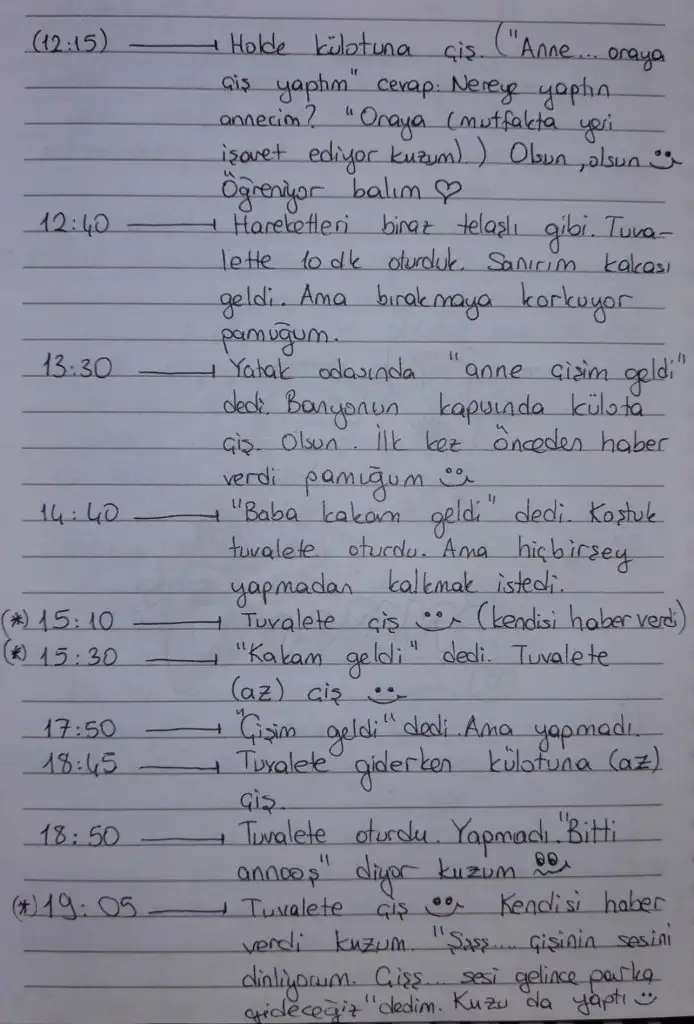 (12:15) → Holde külotuna çiş. ("Anne... oraya
çiş yaptım" cevap: Nereye yaptın
annecim? "Oraya (mutfakta yeri
işaret ediyor kuzum)) Olsun, olsun
Öğreniyor balım ♡
12:40 → Hareketleri biraz telaşlı gibi. Tuva-
lette 10 dk oturduk. Sanırım kakası
geldi. Ama bırakmaya korkuyor
pamuğum.
13:30 → Yatak odasında "anne çişim geldi"
dedi. Banyonun kapısında külota
çiş. Olsun. İlk kez önceden haber
verdi pamuğum
14:40 → "Baba kakam geldi" dedi. Koştuk
tuvalete oturdu. Ama hiçbirşey
yapmadan kalkmak istedi.
(*) 15:10 → Tuvalete çiş (kendisi haber verdi)
(*) 15:30 → "Kakam geldi" dedi. Tuvalete
(az) çiş
17:50 → "Çişim geldi" dedi. Ama yapmadı.
18:45 → Tuvalete giderken külotuna (az)
çiş.
18:50 → Tuvalete oturdu. Yapmadı. "Bitti
annooş" diyor kuzum
(*) 19:05 → Tuvalete çiş Kendisi haber
verdi kuzum. "Şşşş.... çişinin sesini
dinliyorum. Çişş... sesi gelince parka
gideceğiz" dedim. Kuzu da yaptı